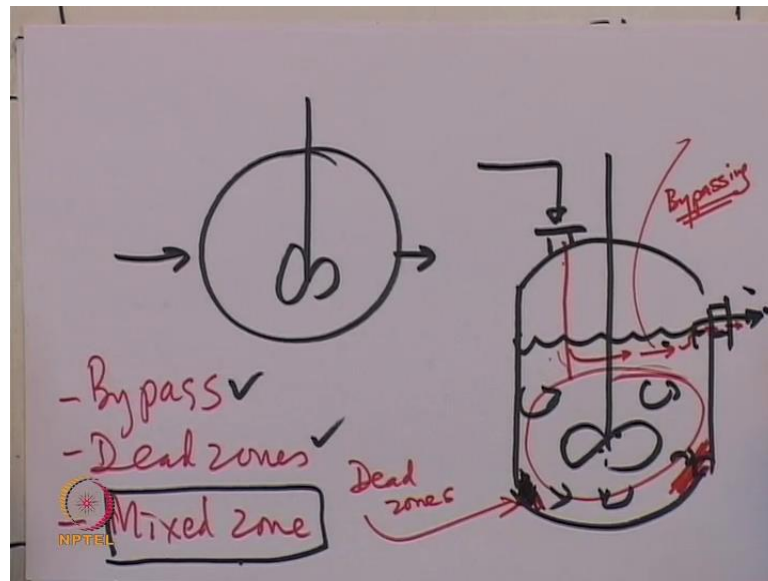 Bypassing
- Bypass ✓
- Dead zones ✓
- Mixed zone
Dead
zones
NPTEL